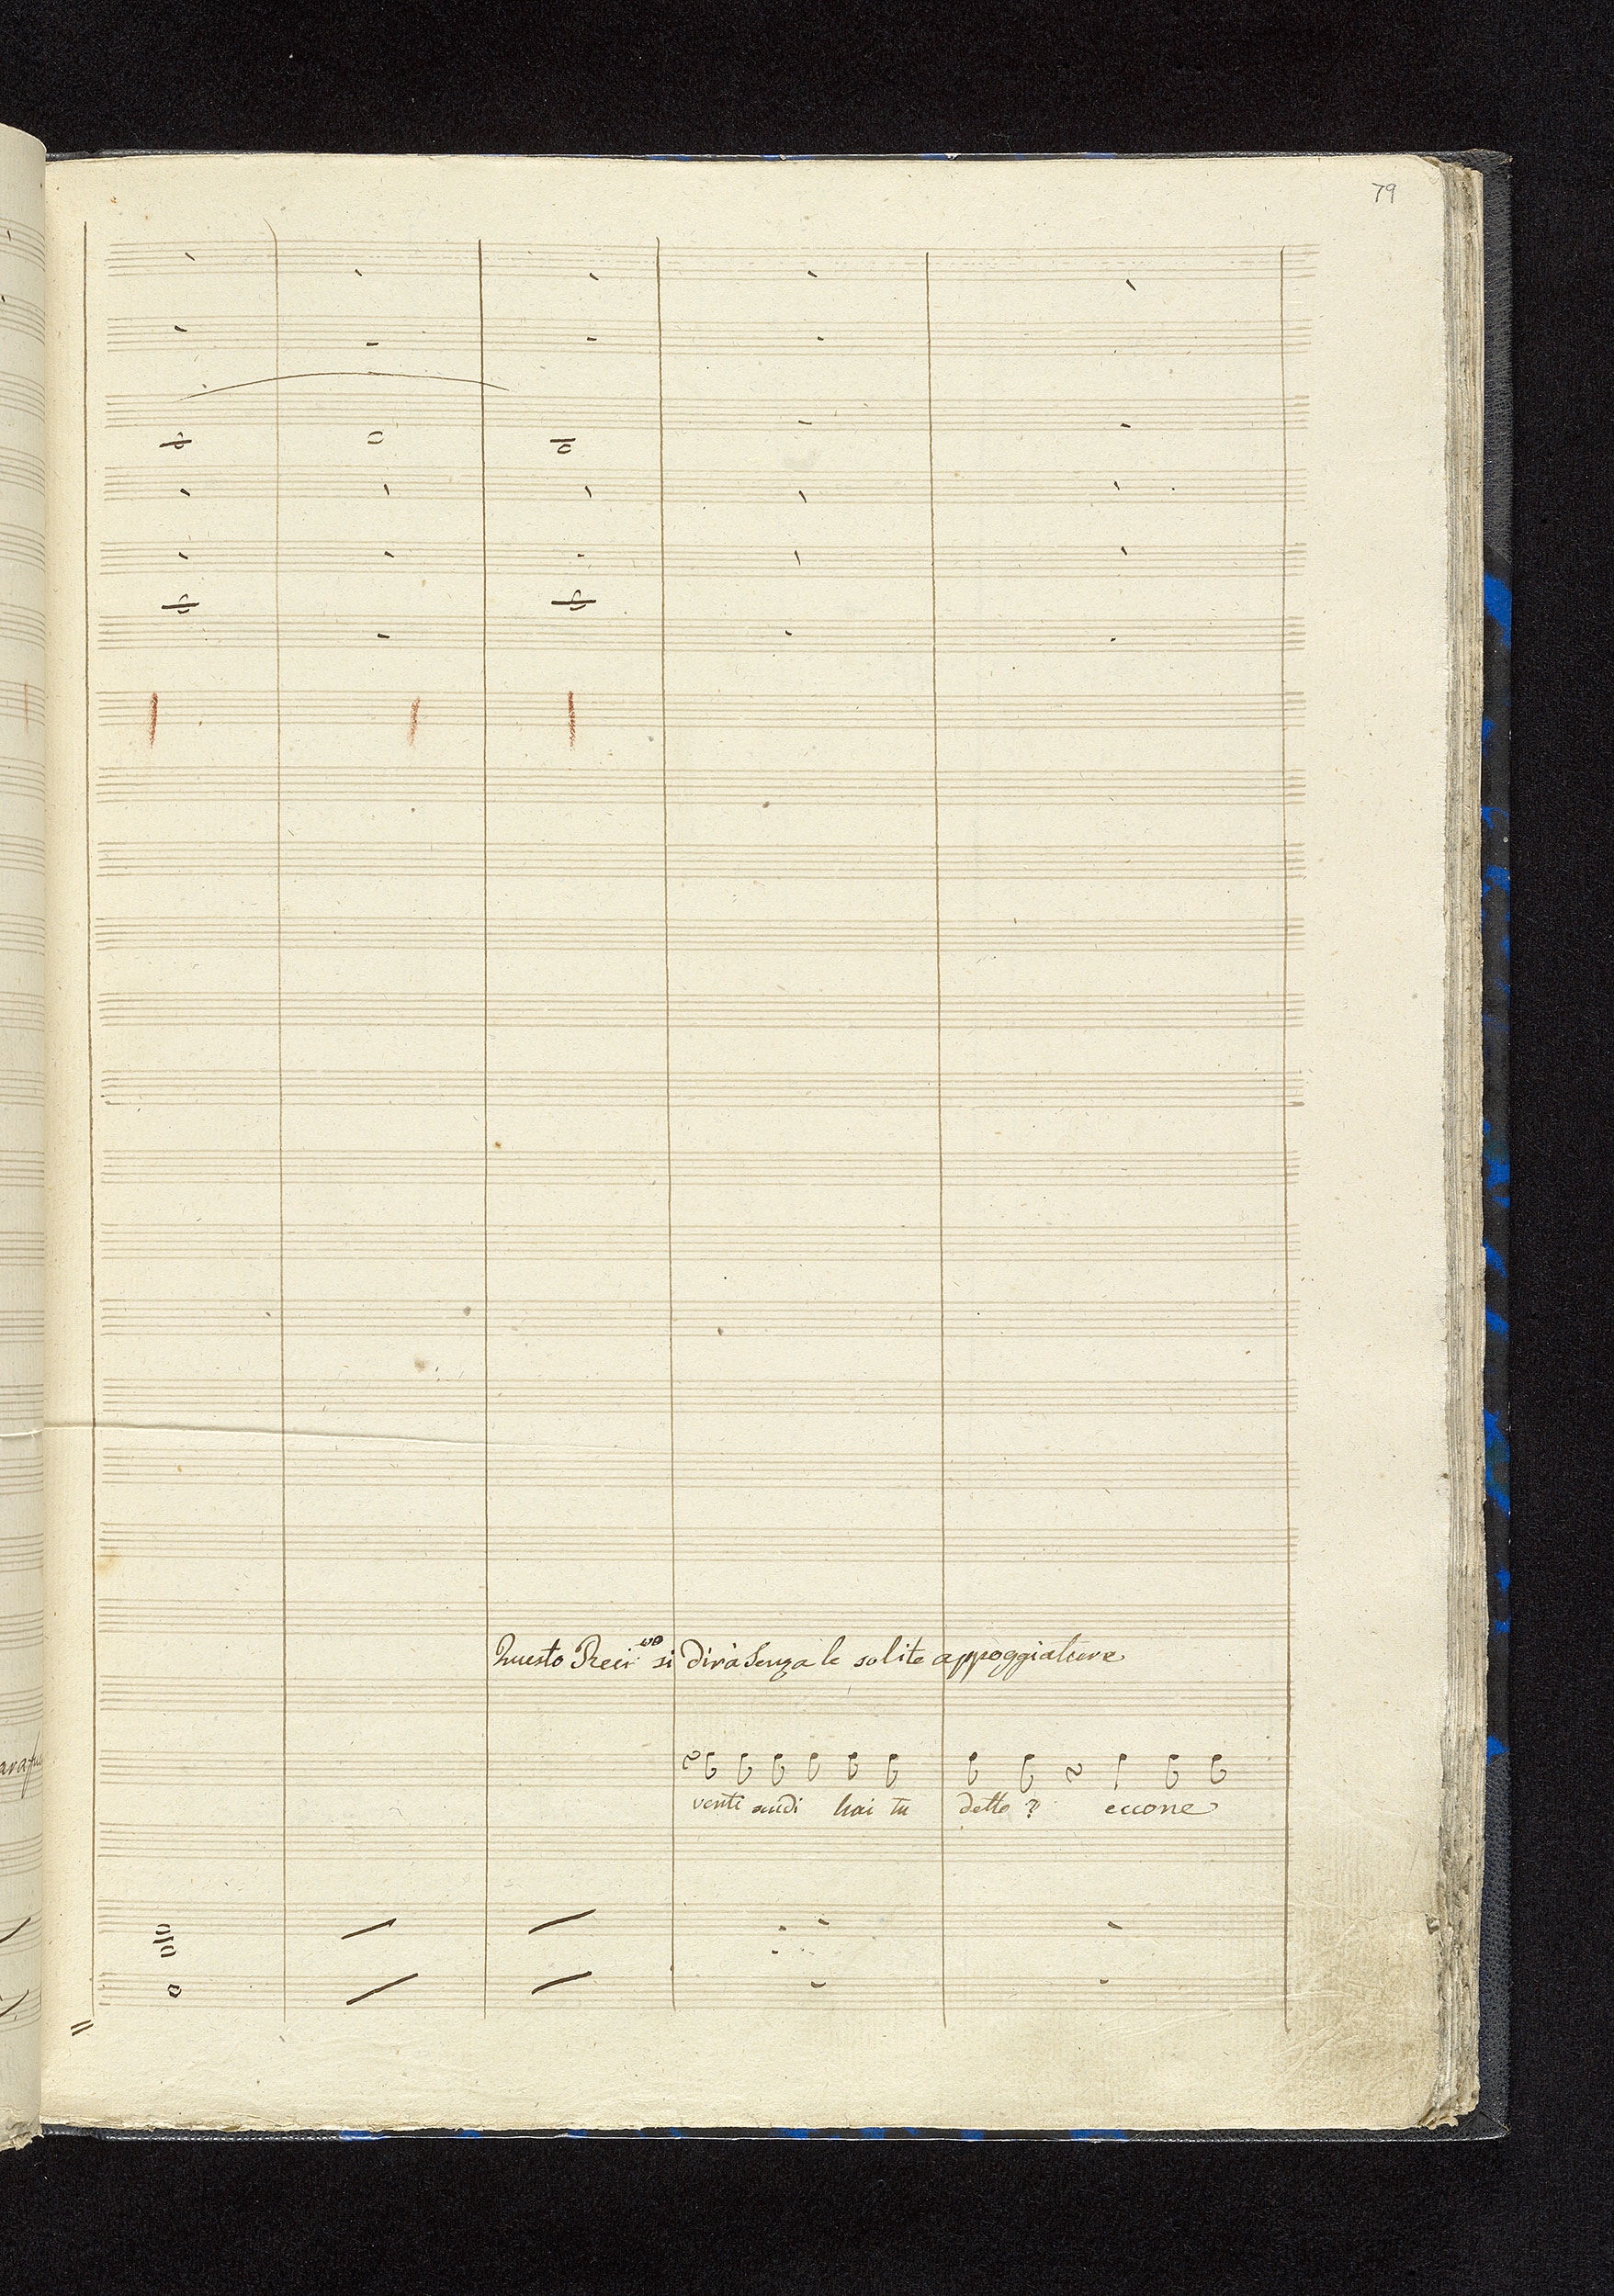 79
Questo Recit.vo si dirà senza le solite appoggiature
venti scudi hai tu detto? eccone